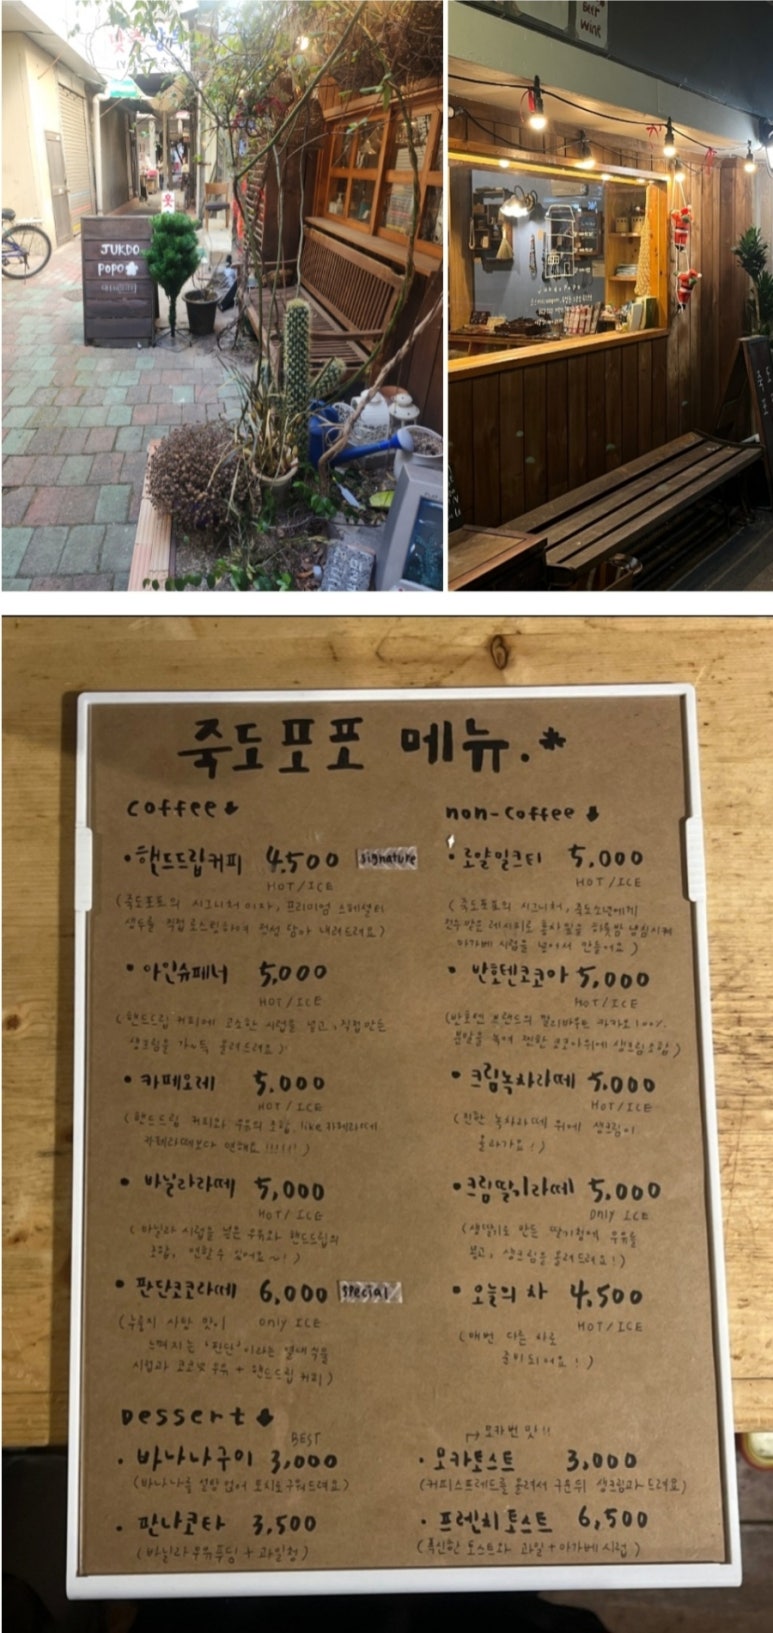 Beer
wine
JUKDO
POPO
Jukdo Popo
죽도포포 메뉴.*
coffee
• 핸드드립커피 4.500 signature
HOT/ICE
(죽도포포의 시그니처이자, 프리미엄 스페셜티
생두를 직접 로스팅하여 정성 담아 내려드려요)
• 아인슈페너 5,000
HOT/ICE
(핸드드립 커피에 고소한 시럽을 넣고, 직접 만든
생크림을 가~득 올려드려요)
• 카페오레 5.000
HOT/ICE
(핸드드립 커피와 우유의 조합. like 카페라떼
카페라떼보다 연해요 !!!!!! )
• 바닐라라떼 5,000
HOT/ICE
(바닐라 시럽을 넣은 우유와 핸드드립의
조합, 연할 수 있어요~! )
• 판단코코라떼 6,000 special
only ICE
(누룽지 사탕 맛이
느껴지는 '판단'이라는 열대 식물
시럽과 코코넛 우유 + 핸드드립 커피)
non-coffee
• 로얄밀크티 5.000
HOT/ICE
(죽도포포의 시그니처, 죽도소년에게
전수받은 레시피로 홍차잎을 하룻밤 냉침시켜
아가베 시럽을 넣어서 만들어요)
• 반호텐코코아 5,000
HOT/ICE
(반호텐 브랜드의 발리바우트 카카오 100%
분말을 녹여 찐한 코코아위에 생크림 조합)
• 크림녹차라떼 5.000
HOT/ICE
(진한 녹차라떼 위에 생크림이
올라가요!)
• 크림딸기라떼 5.000
only ICE
(생딸기로 만든 딸기청에 우유를
붓고, 생크림을 올려드려요!)
• 오늘의 차 4,500
HOT/ICE
(매번 다른 차로
준비되어요!)
Dessert
BEST
• 바나나구이 3,000
(바나나를 설탕 입혀 토치로 구워드려요)
• 판나코타 3,500
(바닐라우유푸딩 + 과일청)
모카번 맛!!
• 모카토스트 3,000
(커피스프레드를 올려서 구운뒤 생크림과 드려요)
• 프렌치토스트 6,500
(폭신한 토스트와 과일 + 아가베 시럽)